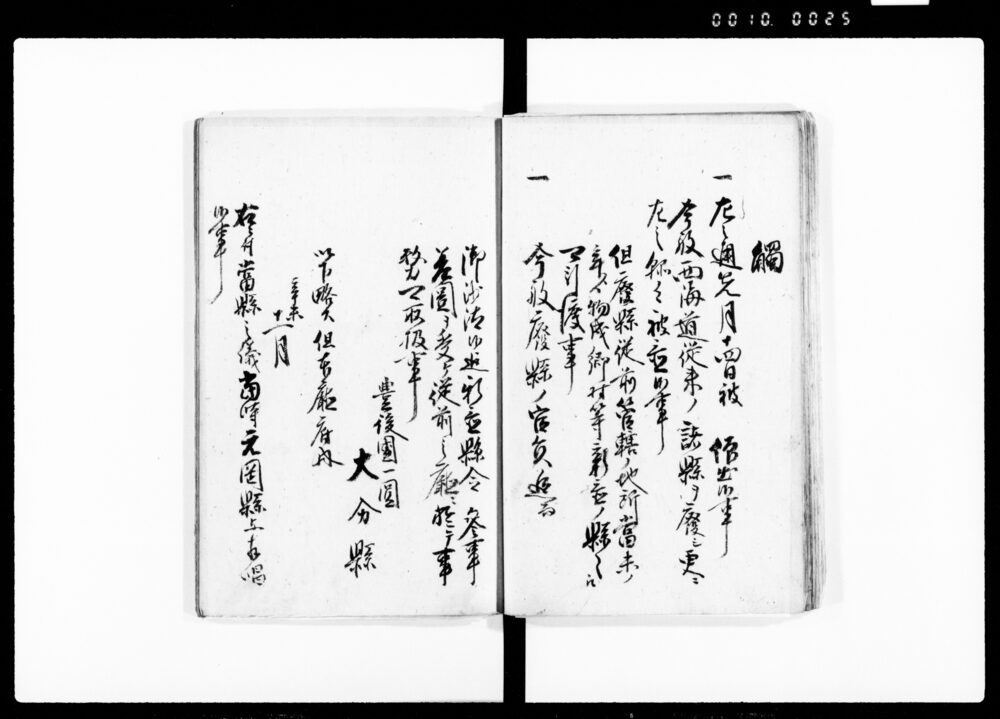 0010.0025
觸
一 左之通先月十四日被 仰出候事
今般西海道従来ノ諸縣ヲ廢シ更ニ
左之縣々被置候事
但廢縣従前管轄ノ地所當未ノ
物成郷村等新置ノ縣々ヘ
可引渡事
一 今般廢縣ノ官員追而
御沙汰候迄新置縣令参事
差圖ヲ受ケ従前之廳ニ於テ事
務可取扱事
豊後國一圓
大分縣
以下略ス但本廳府内
辛未
十二月
當縣之儀當時元岡縣与相唱
候事